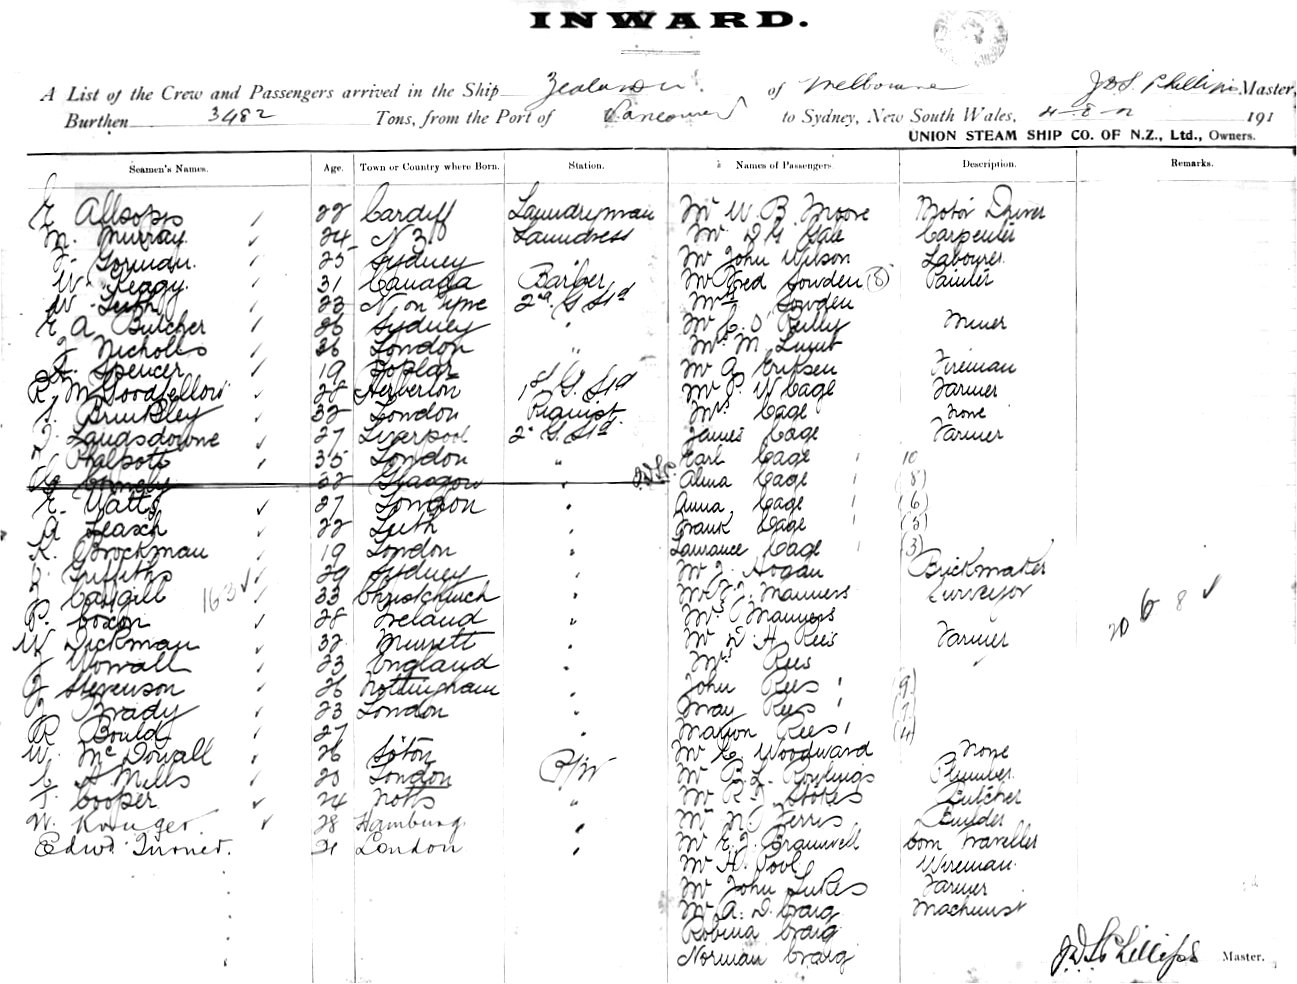 INWARD.
A List of the Crew and Passengers arrived in the Ship Zealandia of Melbourne J D S Phillips Master,
Burthen 3482 Tons, from the Port of Vancouver to Sydney, New South Wales, 4-8-12 191
UNION STEAM SHIP CO. OF N.Z., Ltd., Owners.
Seamen's Names. Age. Town or Country where Born. Station. Names of Passengers. Description. Remarks.
E. Allsopps 22 Cardiff Laundryman Mr W. B. Moore Motor Driver
M. Murray 24 N Z Laundress Mr D G Gale Carpenter
J. Gorman 25 Sydney Mr John Wilson Labourer
W. Keggy 31 Canada Barber Mr Fred Sowden (8) Painter
W. Leith 23 N. on Tyne 2nd G Std Mrs Sowden
E A Butcher 26 Sydney " Mr C. O'Reilly Miner
J Nicholls 36 London " Mr M
Spencer 19 Poplar Mr A Eriksen Fireman
R. M Goodfellow 28 Herberton 1st G. Std Mr P. W Cage Farmer
S. Brinkley 32 London Pianist Mrs Cage None
J. Langsdowne 27 Liverpool 2nd G. Std James Cage Farmer
Philpott 35 London " Earl Cage 10
22 Glasgow " Alma Cage (8)
E. Watts 27 London " Anna Cage (6)
A Leask 22 Leith " Frank Cage (5)
K. Brockman 19 London " Lawrance Cage (3)
J Griffiths 29 Sydney " Mr J. Hogan Brickmaker
J Cargill 163 33 Christchurch " Mr F. J. Manners Surveyor
P. Coxon 28 Ireland " Mrs Manners 20 6 8
W Dickman 32 " Mr D. H. Rees Farmer
J Worrall 23 England " Mrs Rees
J Stevenson 26 Nottingham " John Rees (9)
J Brady 23 London " May Rees (7)
R Bould 27 " Marion Rees (4)
W. McDowall 26 Soton Mr C. Woodward None
C A Mills 25 London P/W Mr B. L. Rowlings Plumber
J. Cooper 24 Notts " Mr R. J. Stokes Butcher
W. Kruger 28 Hamburg " Mr N. J Ferris Builder
Edwd Turner. 21 London " Mr E. J. Bramwell Com Traveller
Mr H. Pool Wireman
Mr John Lukes Farmer
Mr A. D. Craig Machinist
Robina Craig
Norman Craig J. D. S. Phillips Master.